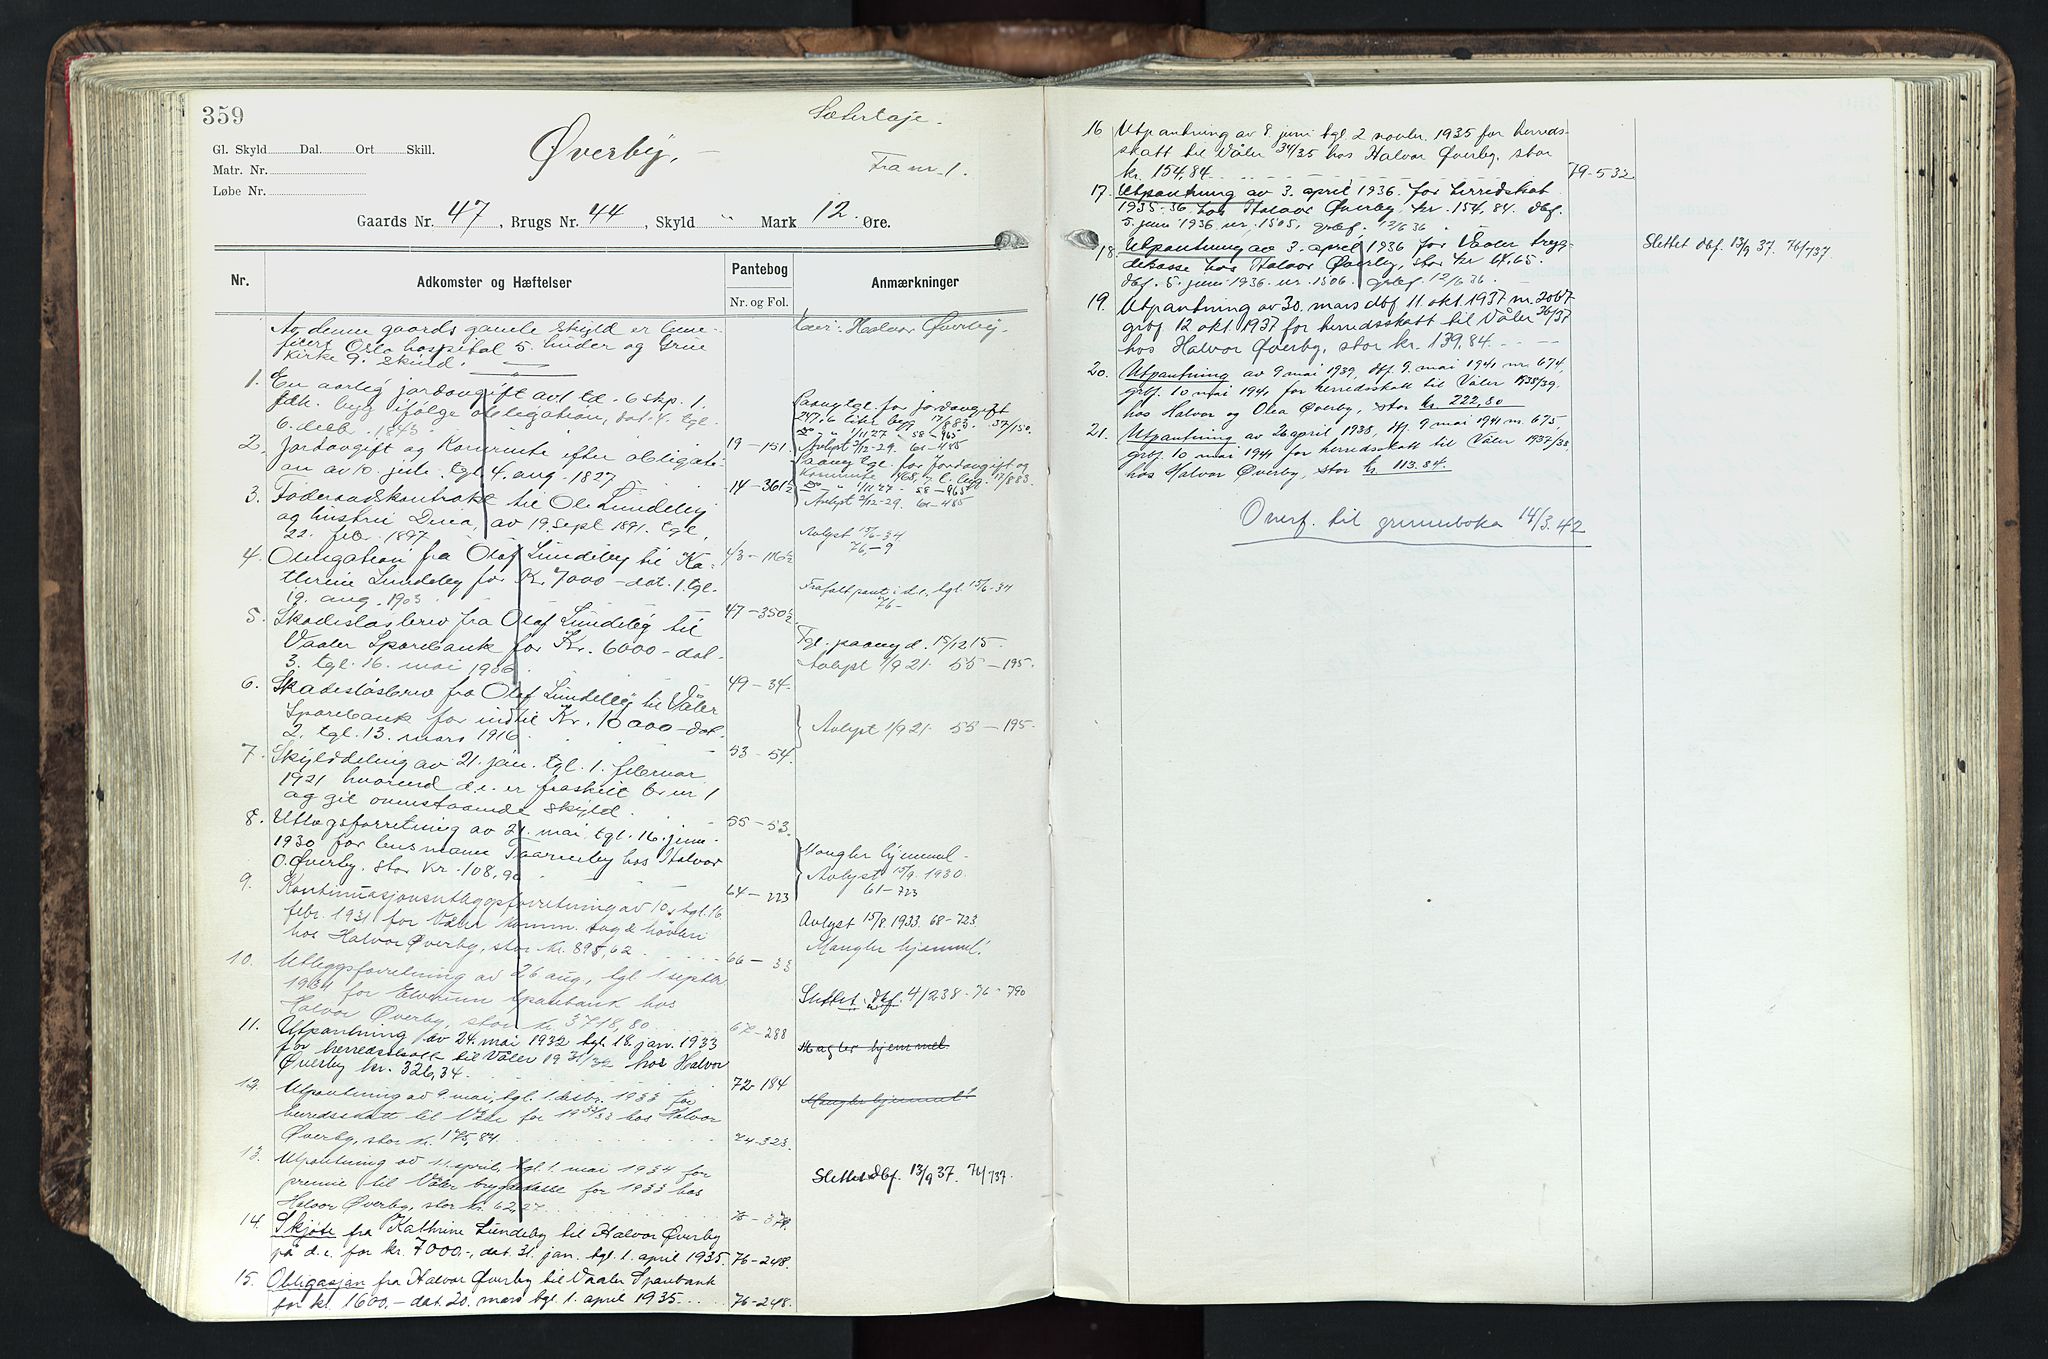 359
Gl. Skyld Dal. Ort Skill.
Matr. Nr.
Løbe Nr.
Øverby.
Fra nr. 1.
Gaards Nr. 47, Brugs Nr. 44, Skyld " Mark 12 Øre.
Nr. Adkomster og Hæftelser Pantebog Nr. og Fol. Anmærkninger
Av denne gaards gamle skyld er bene-
ficert Oslo hospital 5 huder og Grue
kirke 9 skind.
Eier: Halvor Øverby.
1. En aarlig jordavgift av 1 td. 6 skp. 1
fdk. byg ifølge obligation, dat. 4. tgl.
6. decb. 1843.
19-151
Paany tgl. for jordavgift
247,6 liter byg 17/8 83. 37/150.
Do " 1/11 27 - 58-965
Avlyst 2/12-29. 61-485
2. Jordavgift og Kornrente efter obligati-
on av 10. juli tgl. 4. aug. 1827
14-361½
Paany tgl. for jordavgift og
Kornrente 1468,7 l. byg. 17/8 83.
Do " 1/11 27 - 58-965
Avlyst 2/12-29. 61-485
3. Føderaadskontrakt til Ole Lundeby
og hustru Dina, av 19. sept 1891. tgl.
22. febr. 1897
43-116½
Avlyst 15/6-34
76-9
4. Obligation fra Olof Lundeby til Ka-
thrine Lundeby for Kr. 7000- dat. 1. tgl.
19. aug. 1903
47-350½
Frafalt pant i d.e. tgl. 15/6-34
76-
5. Skadesløsbrev fra Olof Lundeby til
Vaaler Sparebank for Kr. 6000- dat.
3. tgl. 16. mai 1906
49-34.
Tgl. paany d. 15/12 15.
Avlyst 1/9 21. 55-195.
6. Skadesløsbrev fra Olof Lundeby til Våler
Sparebank for indtil Kr. 10000- dat.
2. tgl. 13. mars 1916
53-54.
Avlyst 1/9 21. 55-195.
7. Skylddeling av 21. jan. tgl. 1. februar
1921 hvorved d.e. er fraskilt br. nr 1
og git ovenstaaende skyld.
55-53.
8. Utlægsforretning av 21. mai, tgl. 16. juni
1930 for lensmann Taarneby hos Halvor
O. Øverby, stor kr. 108,90
64-223
Mangler hjemmel.
Avlyst 15/9. 1930.
61-723
9. Kontinuasjonsutleggsforretning av 10, tgl. 16
febr. 1931 for Våler komm. sag & høvleri
hos Halvor Øverby, stor kr. 895,62
66-33
Avlyst 15/8. 1933 68-723
Mangler hjemmel!
10. Utleggsforretning av 26 aug, tgl 1. septbr
1931 for Elverum Sparebank hos
Halvor Øverby, stor kr. 3718,80
67-288
Slettet dbf. 4/2 38-76-790
11. Utpantning av 24. mai 1932 tgl. 18. jan. 1933
for herredsskatt til Våler 1931/32 hos Halvor
Øverby kr. 326,34
72-184
Mangler hjemmel.
12. Utpantning av 9 mai, tgl. 1. desbr. 1933 for
herredsskatt til Våler for 1932/33 hos Halvor
Øverby, stor kr. 175,84.
74-323.
Mangler hjemmel!
13. Utpantning av 11. april, tgl. 1. mai 1934 for
premie til Våler trygdekasse for 1933 hos
Halvor Øverby, stor kr. 62,27
Slettet dbf. 13/9 37. 76/737.
14. Skjøte fra Kathrine Lundeby til Halvor Øverby
på d.e. for kr. 7000.-, dat. 31. jan. tgl. 1. april 1935.
76-248.
15. Obligasjon fra Halvor Øverby til Vaaler Sparebank
for kr. 1600,- dat. 20. mars tgl. 1. april 1935.
76-248.
16 Utpantning av 8. juni tgl. 2 novbr. 1935 for herreds-
skatt til Våler 34/35 hos Halvor Øverby, stor
kr. 154,84.
79-532
17. Utpantning av 3. april 1936 for herredskat
1935-36 hos Halvor Øverby, kr. 154,84. dbf.
5. juni 1936 nr. 1505, grbf. 12/6 36
18. Utpantning av 3. april 1936 for Våler tryg-
dekasse hos Halvor Øverby, stor kr 64,65.
dbf. 5. juni 1936. nr. 1506. grbf 12/6 36.
Slettet dbf. 13/9 37. 76/737.
19. Utpantning av 30. mars dbf 11. okt 1937 nr. 2067
grbf 12 okt 1937 for herredsskatt til Våler 36/37
hos Halvor Øverby, stor kr. 139,84.
20. Utpantning av 9 mai 1939, dbf. 9. mai 1941 nr. 674,
grbf. 10 mai 1941 for herredsskatt til Våler 1938/39.
hos Halvor og Olea Øverby, stor kr. 222,80
21. Utpantning av 26 april 1938, dbf. 9 mai 1941 nr. 675,
grbf. 10 mai 1941 for herredsskatt til Våler 1937/38,
hos Halvor Øverby, stor kr. 113.84.
Overf. til grunnboka 14/3.42